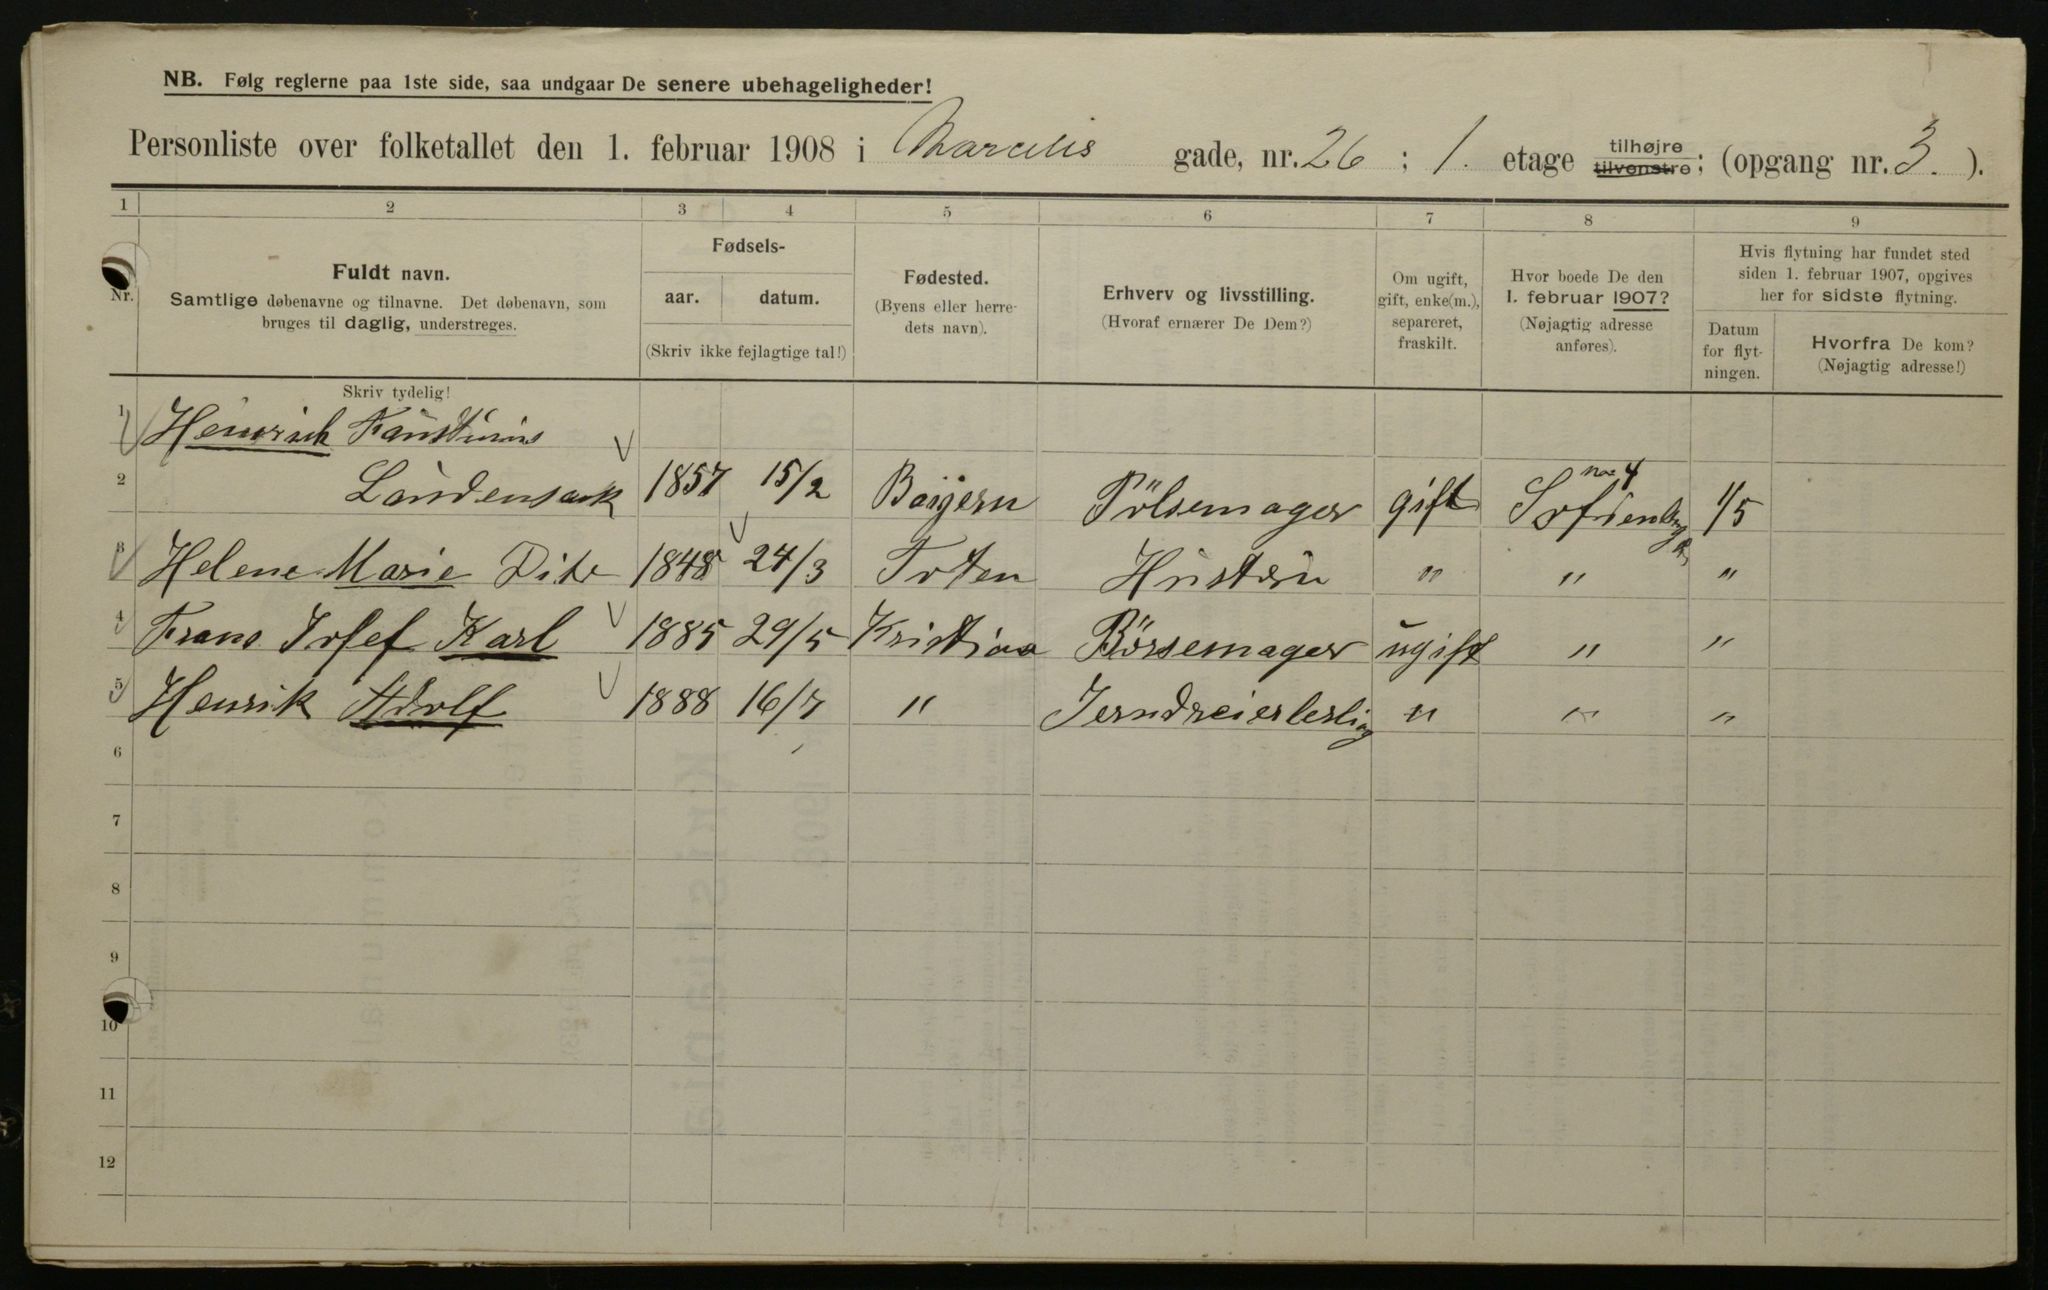 NB. Følg reglerne paa 1ste side, saa undgaar De senere ubehageligheder!
Personliste over folketallet den 1. februar 1908 i Marcelis gade, nr. 26 ; 1. etage tilhøjre tilvenstre ; (opgang nr. 3. ).
1 2 3 4 5 6 7 8 9
Nr.
Fuldt navn.
Samtlige døbenavne og tilnavne. Det døbenavn, som
bruges til daglig, understreges.
Skriv tydelig!
Fødsels-
aar. datum.
(Skriv ikke fejlagtige tal!)
Fødested.
(Byens eller herre-
dets navn).
Erhverv og livsstilling.
(Hvoraf ernærer De Dem?)
Om ugift,
gift, enke(m.),
separeret,
fraskilt.
Hvor boede De den
1. februar 1907?
(Nøjagtig adresse
anføres).
Hvis flytning har fundet sted
siden 1. februar 1907, opgives
her for sidste flytning.
Datum
for flyt-
ningen.
Hvorfra De kom?
(Nøjagtig adresse!)
1 Heinrich Faustinus
2 Laudensack 1857 15/2 Baijern Pölsemager gift no 4 Sofienberg 1/5
3 Helene Marie 1848 24/3 Toten Hustru " " "
4 Frans Josef Karl 1885 29/5 Kristiaa Börsemager ugift " "
5 Henrik Adolf 1888 16/7 " Jerndreierlerling " " "
6
7
8
9
10
11
12